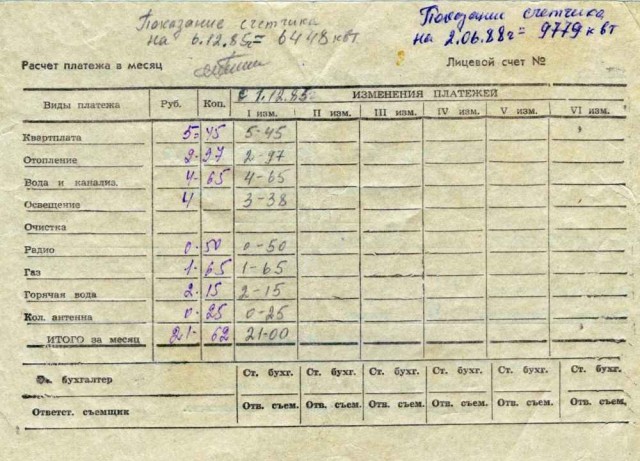 Показание счетчика
на 6.12.85г= 6448 квт
Показания счетчика
на 2.06.88г= 9779 квт
Расчет платежа в месяц
Лицевой счет №
Виды платежа Руб. Коп. с 1.12.85г ИЗМЕНЕНИЯ ПЛАТЕЖЕЙ
I изм. II изм. III изм. IV изм. V изм. VI изм.
Квартплата 5= 45 5-45
Отопление 2- 97 2-97
Вода и канализ. 4- 65 4-65
Освещение 4 3-38
Очистка
Радио 0- 50 0-50
Газ 1- 65 1-65
Горячая вода 2- 15 2-15
Кол. антенна 0- 25 0-25
ИТОГО за месяц 21- 62 21-00
бухгалтер Ст. бухг. Ст. бухг. Ст. бухг. Ст. бухг. Ст. бухг. Ст. бухг.
Ответст. съемщик Отв. съем. Отв. съем. Отв. съем. Отв. съем. Отв. съем. Отв. съем.